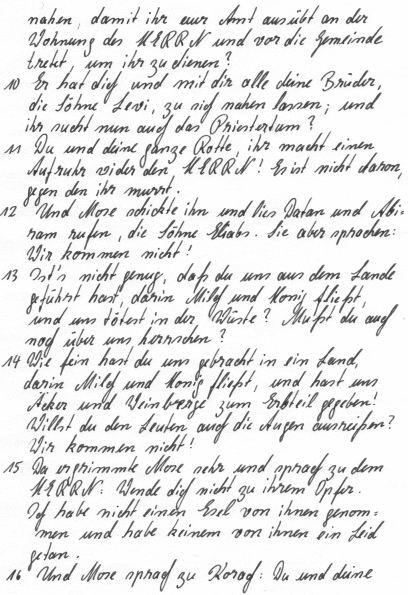 nahen, damit ihr eur Amt ausübt an der
Wohnung des HERRN und vor die Gemeinde
tretet, um ihr zu dienen?
10 Er hat dich und mit dir alle deine Brüder,
die Söhne Levi, zu sich nahen lassen; und
ihr sucht nun auch das Priestertum?
11 Du und deine ganze Rotte, ihr macht einen
Aufruhr wider den HERRN! Es ist nicht Aaron,
gegen den ihr murrt.
12 Und Mose schickte hin und lies Datan und Abi-
ram rufen, die Söhne Eliabs. Sie aber sprachen:
Wir kommen nicht!
13 Ist's nicht genug, daß du uns aus dem Lande
geführt hast, darin Milch und Honig fließt,
und uns tötest in der Wüste? Mußt du auch
noch über uns herrschen?
14 Wie fein hast du uns gebracht in ein Land,
darin Milch und Honig fließt, und hast uns
Äcker und Weinberge zum Erbteil gegeben!
Willst du den Leuten auch die Augen ausreißen?
Wir kommen nicht!
15 Da ergrimmte Mose sehr und sprach zu dem
HERRN: Wende dich nicht zu ihrem Opfer.
Ich habe nicht einen Esel von ihnen genom=
men und habe keinem von ihnen ein Leid
getan.
16 Und Mose sprach zu Korach: Du und deine